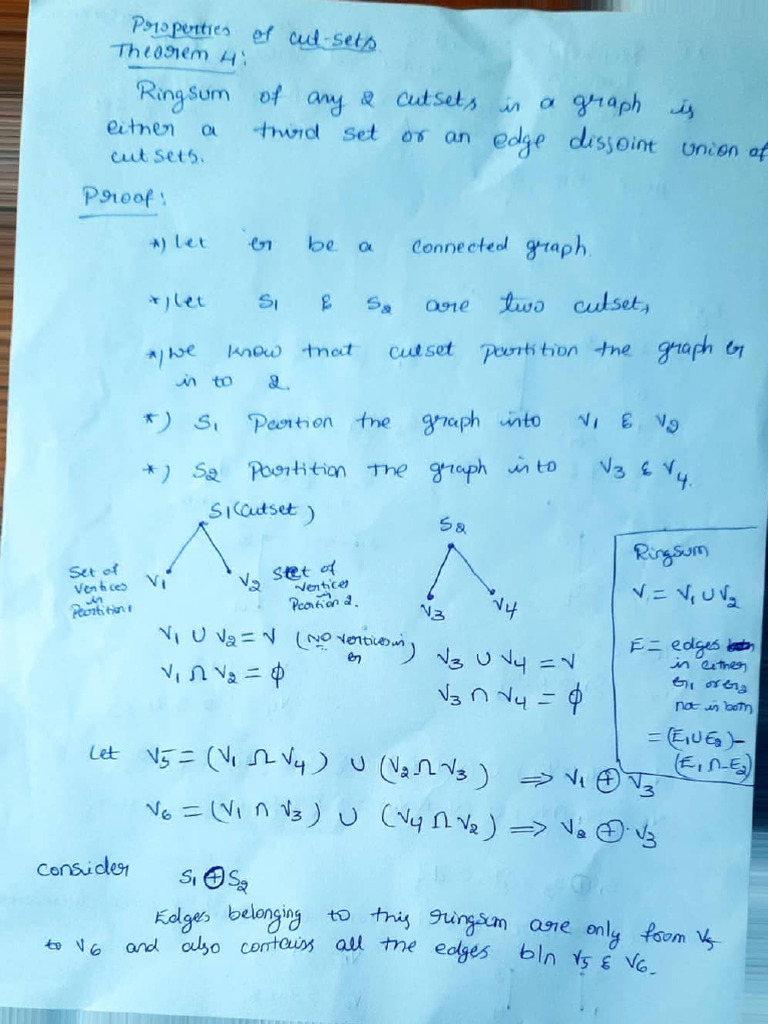 Properties of cut-sets
Theorem 4:
Ringsum of any 2 cutsets in a graph is
either a third set or an edge disjoint union of
cutsets.
Proof:
*) Let G be a connected graph.
*) Let S1 & S2 are two cutsets
*) We know that cutset partition the graph G
in to 2.
*) S1 Partion the graph into V1 & V2
*) S2 Partition the graph into V3 & V4.
S1 (cutset)
Set of
vertices
in
Partition 1
V1
V2
Set of
vertices
in
Partition 2.
S2
V3
V4
V1 ∪ V2 = V (No vertices in
G)
V1 ∩ V2 = ϕ
V3 ∪ V4 = V
V3 ∩ V4 = ϕ
Ringsum
V = V1 ∪ V2
E = edges
in either
G1 or G2
not in both
= (E1 ∪ E2) -
(E1 ∩ E2)
Let V5 = (V1 ∩ V4) ∪ (V2 ∩ V3) ⇒ V1 ⊕ V3
V6 = (V1 ∩ V3) ∪ (V4 ∩ V2) ⇒ V2 ⊕ V3
Consider
S1 ⊕ S2
Edges belonging to this ringsum are only from V5
to V6 and also contains all the edges b/n V5 & V6.